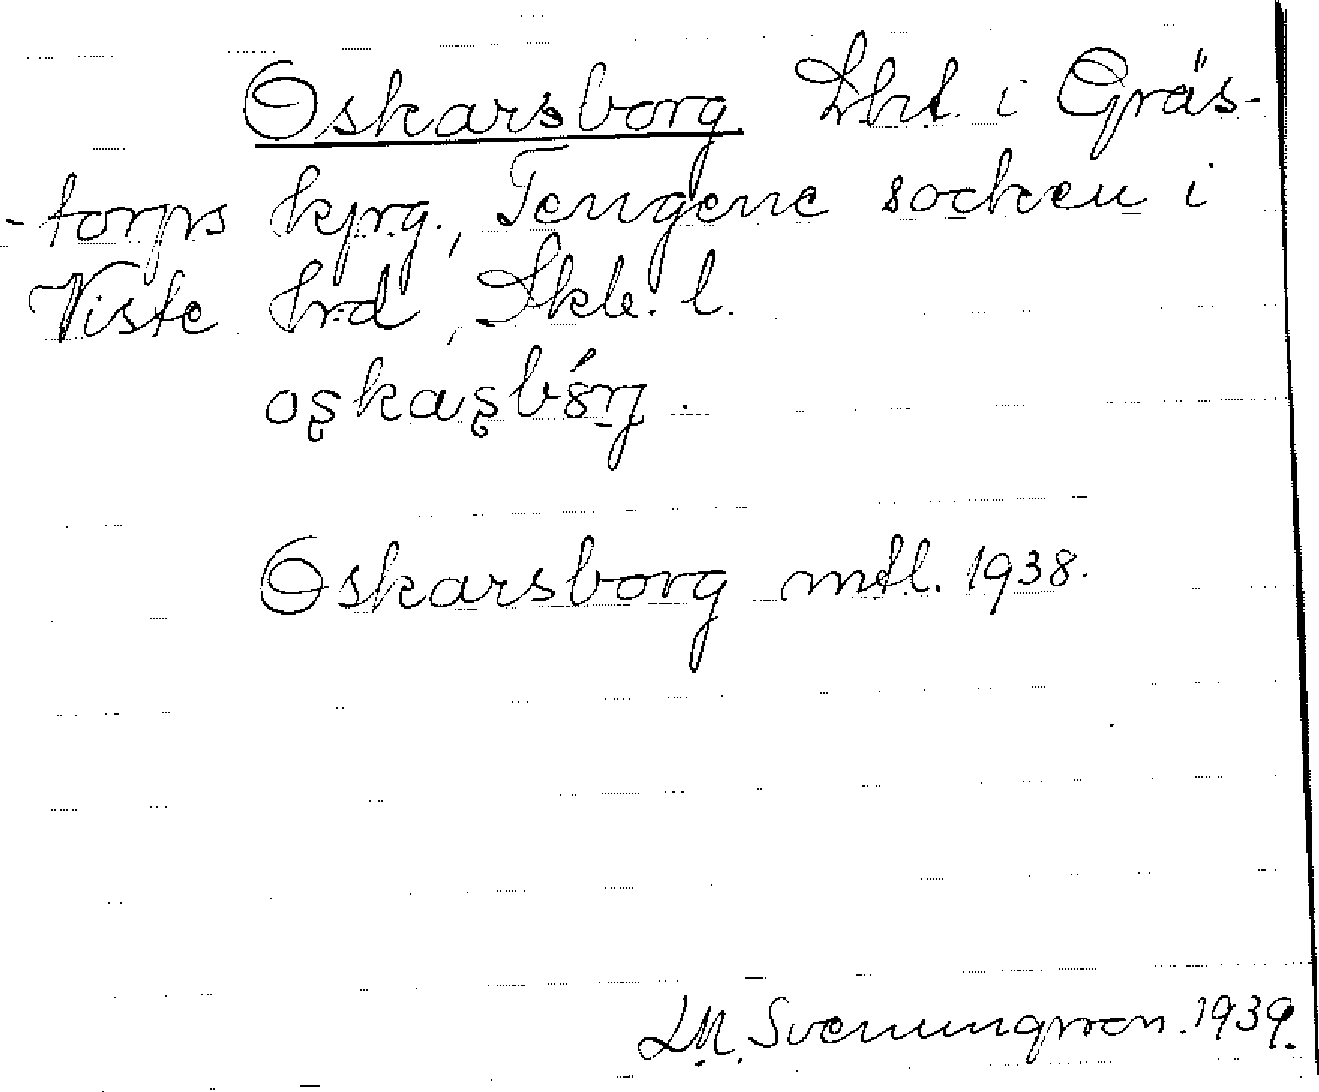 Oskarsborg Lht. i Gräs-
-torps kpg., Tengene socken i
Viste hrd, Skb. l.
oskaʂbórg.
Oskarsborg mtl. 1938.
L.M. Svenungsson. 1939.